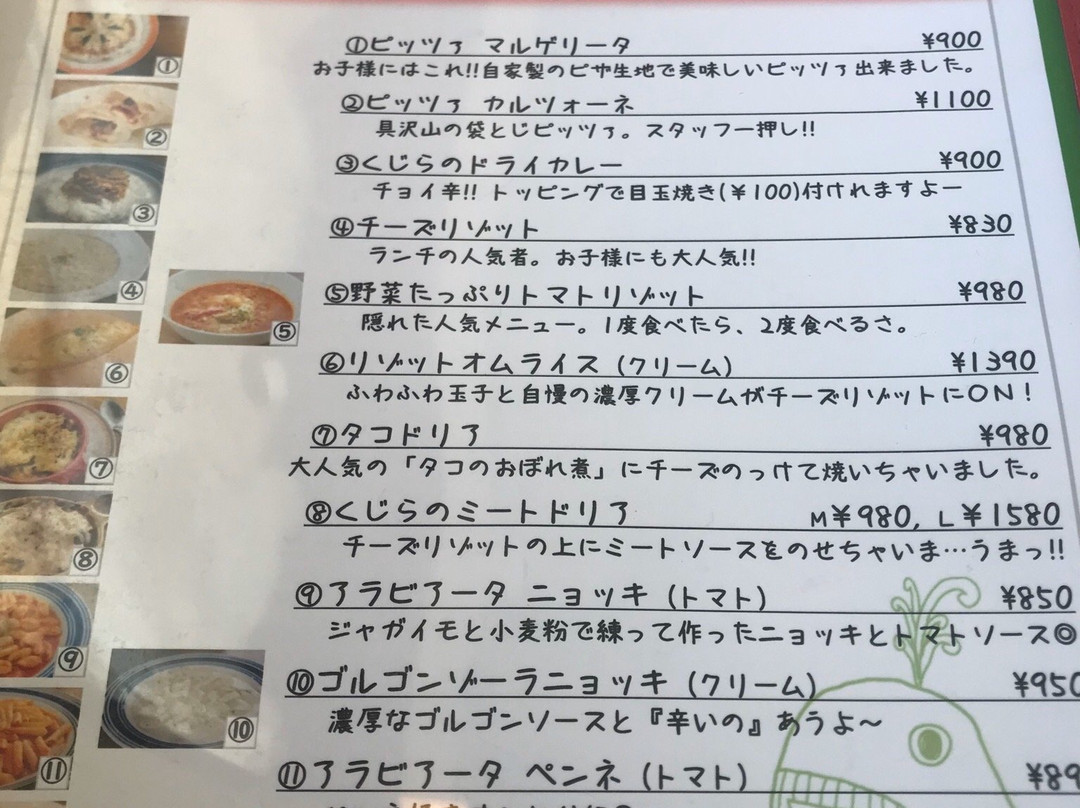 ①ピッツァ マルゲリータ ¥900
お子様にはこれ!!自家製のピザ生地で美味しいピッツァ出来ました。
②ピッツァ カルツォーネ ¥1100
具沢山の袋とじピッツァ。スタッフ一押し!!
③くじらのドライカレー ¥900
チョイ辛!! トッピングで目玉焼き(¥100)付けれますよー
④チーズリゾット ¥830
ランチの人気者。お子様にも大人気!!
⑤野菜たっぷりトマトリゾット ¥980
隠れた人気メニュー。1度食べたら、2度食べるさ。
⑥リゾットオムライス(クリーム) ¥1390
ふわふわ玉子と自慢の濃厚クリームがチーズリゾットにON!
⑦タコドリア ¥980
大人気の「タコのおぼれ煮」にチーズのっけて焼いちゃいました。
⑧くじらのミートドリア M¥980, L¥1580
チーズリゾットの上にミートソースをのせちゃいま…うまっ!!
⑨アラビアータ ニョッキ(トマト) ¥850
ジャガイモと小麦粉で練って作ったニョッキとトマトソース◎
⑩ゴルゴンゾーラニョッキ(クリーム) ¥950
濃厚なゴルゴンソースと『辛いの』あうよ～
⑪アラビアータ ペンネ(トマト) ¥89
①
②
③
④
⑤
⑥
⑦
⑧
⑨
⑩
⑪